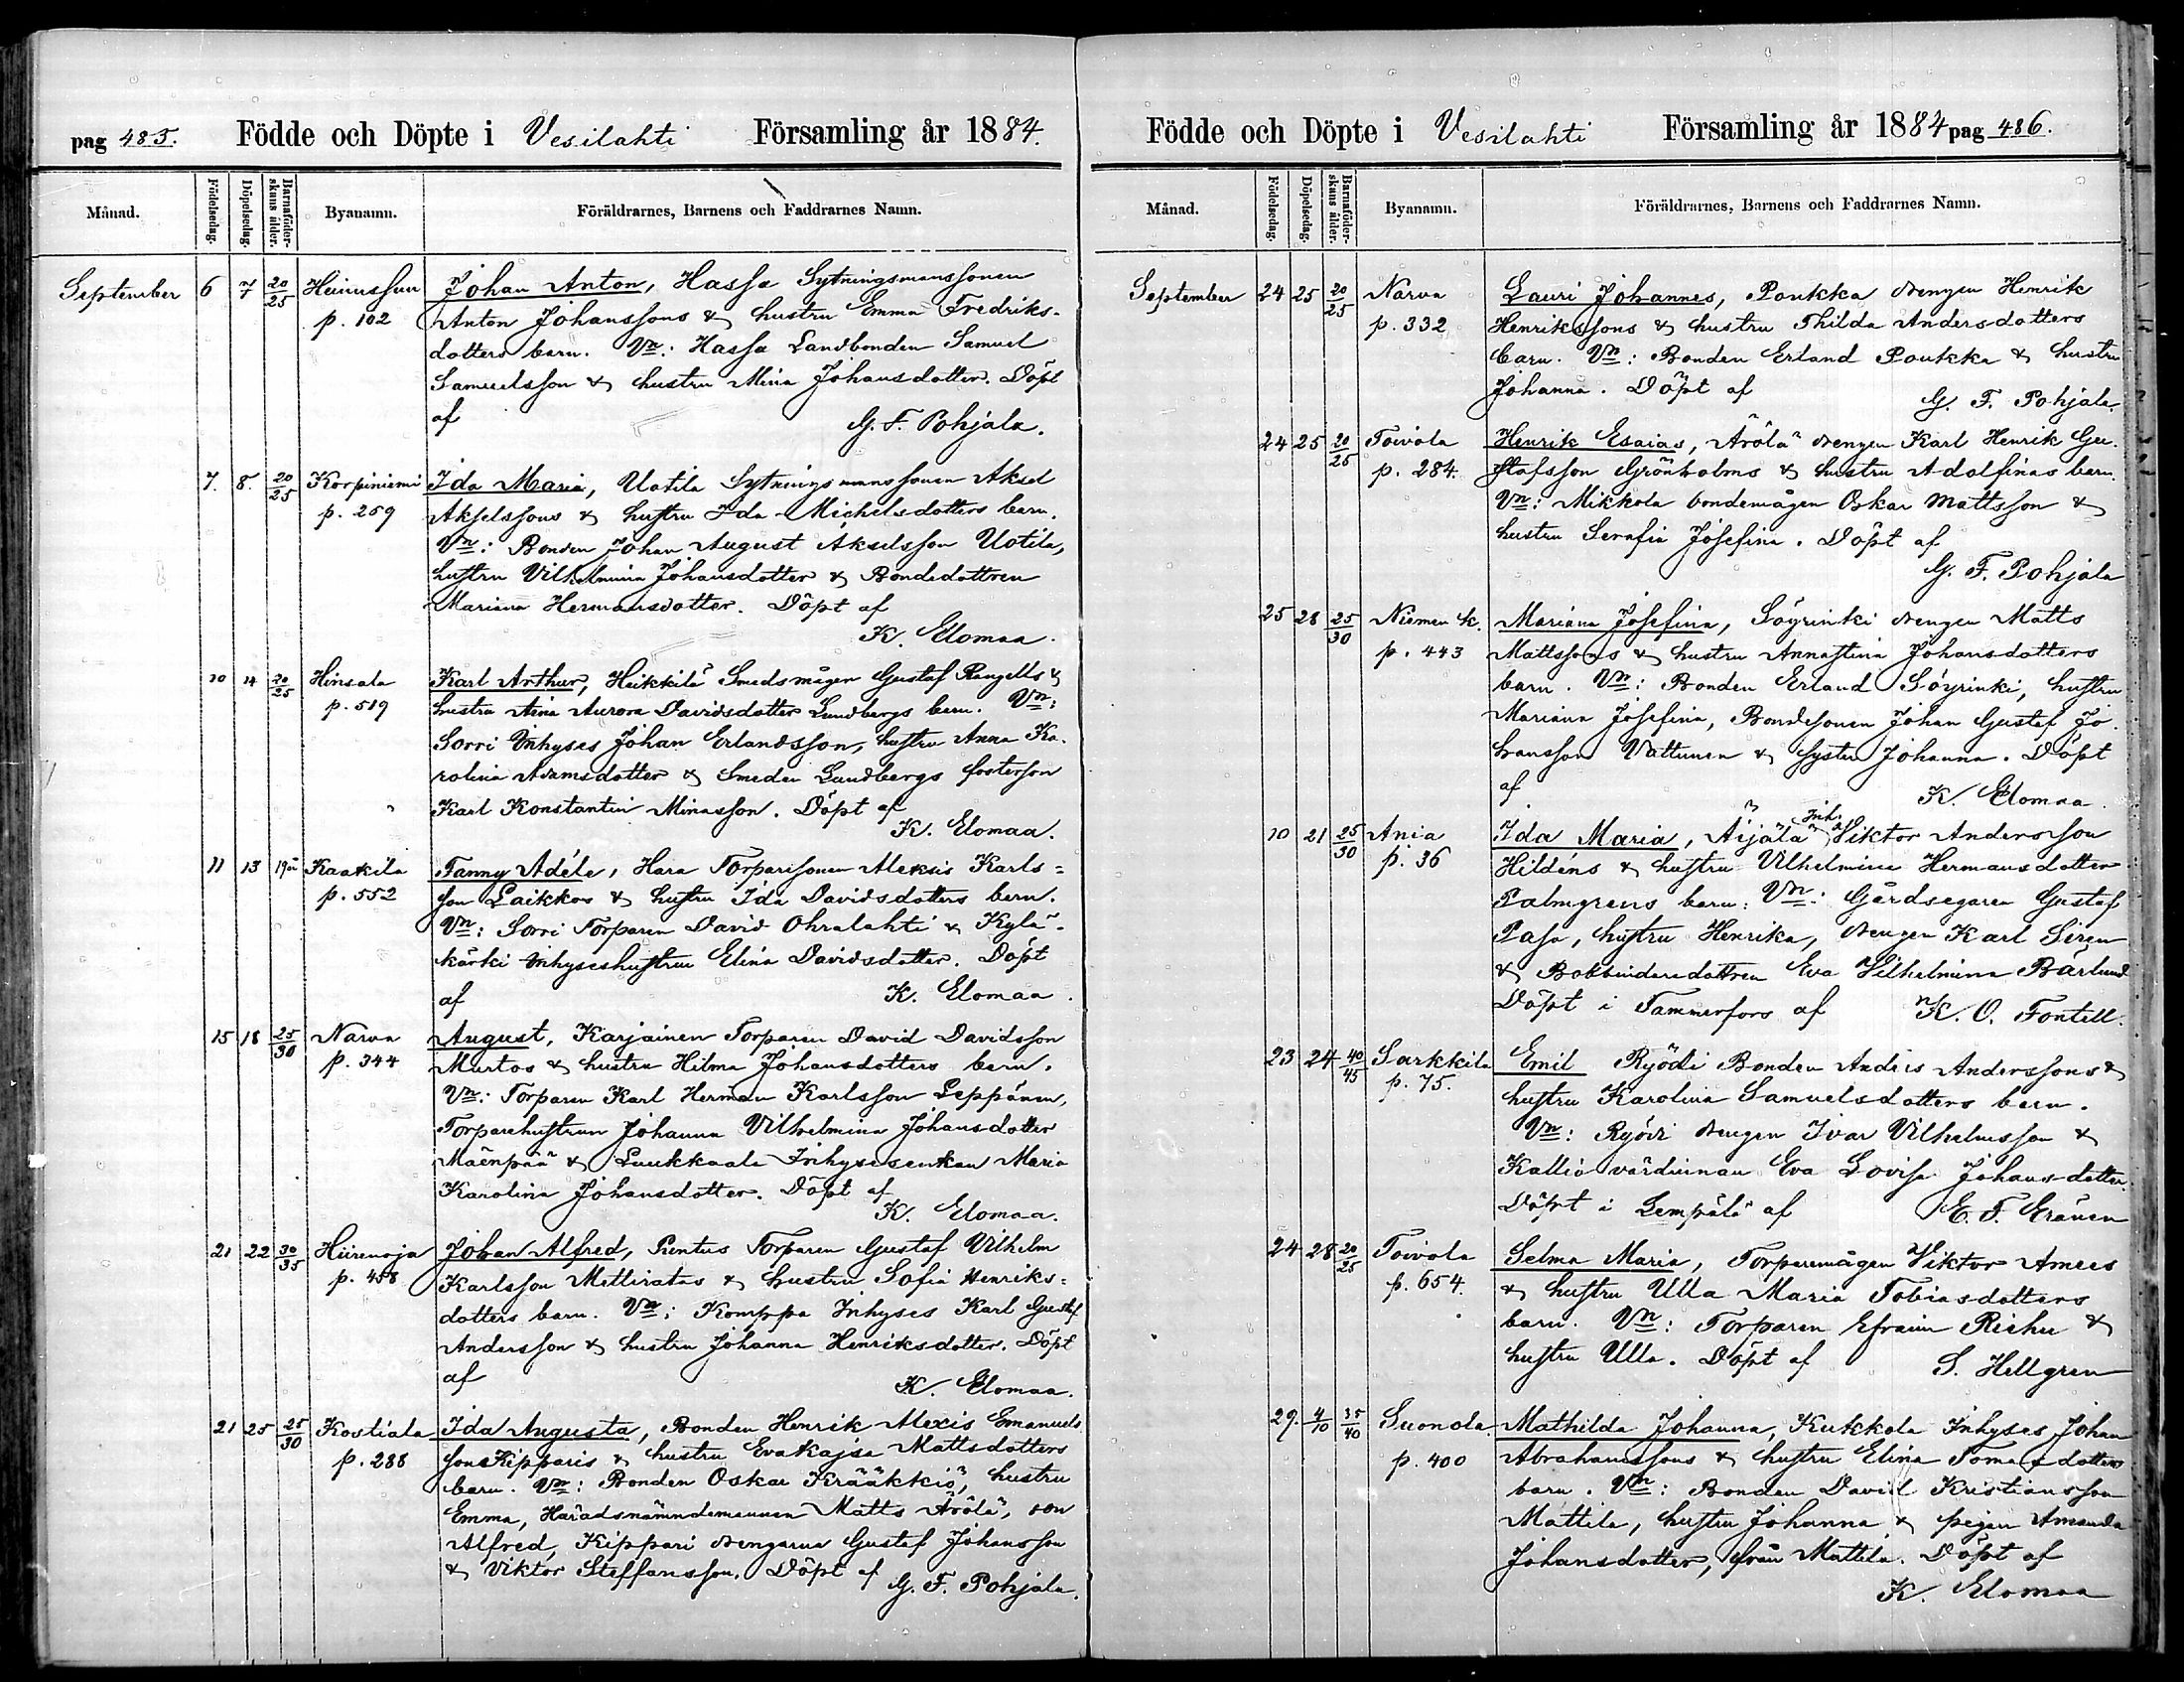 pag 485. Födde och Döpte i Vesilahti Församling år 1884.
Månad. Födelsedag. Döpelsedag. Barnaföderskans ålder. Byanamn. Föräldrarnes, Barnens och Faddrarnes Namn.
September 6 7 20/25 Johan Anton, Hassa Sytningsmanssonen
p. 102 Anton Johanssons & hustru Emma Fredriks-
dotters barn. Vn: Hassa Landbonden Samuel
Samuelsson & hustru Mina Johansdotter. Döpt
af G. F. Pohjala.
7. 8. 20/25 Korpiniemi Ida Maria, Uotila Sytningsmanssonen Aksel
p. 259 Akselssons & hustru Ida Michelsdotters barn.
Vn: Bonden Johan August Akselsson Uotila,
hustru Vilhelmina Johansdotter & Bondedottren
Mariana Hermansdotter. Döpt af
K. Elomaa.
10 14 20/25 Hinsala Karl Arthur, Heikkilä Smedsmågen Gustaf Rangells &
p. 519 hustru Aina Aurora Davidsdotter Lundbergs barn. Vn:
Sorri Inhyses Johan Erlandsson, hustru Anna Ka-
rolina Adamsdotter & Smeden Lundbergs fosterson
Karl Konstantin Minasson. Döpt af
K. Elomaa.
11 13 19 år Kaakila Fanny Adéle, Hara Torparesonen Aleksis Karls=
p. 552 son Laikkos & hustru Ida Davidsdotters barn.
Vn: Sorri Torparen David Ohralahti & Kylä-
kärki Inhyseshustrun Elina Davidsdotter. Döpt
af K. Elomaa.
15 18 25/30 Narva August, Karjainen Torparen David Davidsson
p. 344 Murtos & hustru Hilma Johansdotters barn.
Vn: Torparen Karl Herman Karlsson Leppänen,
Torparehustrun Johanna Vilhelmina Johansdotter
Mäenpää & Luukkaala Inhysesenkan Maria
Karolina Johansdotter. Döpt af
K. Elomaa.
21 22 30/35 Hiirenoja Johan Alfred, Pentus Torparen Gustaf Vilhelm
p. 458 Karlsson Mettiratas & hustru Sofia Henriks=
dotters barn. Vn: Komppa Inhyses Karl Gustaf
Andersson & hustru Johanna Henriksdotter. Döpt
af K. Elomaa.
21 25 25/30 Kostiala Ida Augusta, Bonden Henrik Alexis Emanuels
p. 288 sons Kipparis & hustru Eva Kajsa Mattsdotters
barn. Vn: Bonden Oskar Krääkkiö, hustru
Emma, Häradsnämndemannen Matts Arölä, son
Alfred, Kippari drengarna Gustaf Johansson
& Viktor Steffansson. Döpt af G. F. Pohjala.
Födde och Döpte i Vesilahti Församling år 1884 pag 486.
Månad. Födelsedag. Döpelsedag. Barnaföderskans ålder. Byanamn. Föräldrarnes, Barnens och Faddrarnes Namn.
September 24 25 20/25 Narva Lauri Johannes, Poukka drengen Henrik
p. 332 Henrikssons & hustru Thilda Andersdotters
barn. Vn: Bonden Erland Poukka & hustru
Johanna. Döpt af G. F. Pohjala.
24 25 20/25 Toivola Henrik Esaias, Arölä drengen Karl Henrik Gu-
p. 284. stafsson Grönholms & hustru Adolfinas barn.
Vn: Mikkola bondemågen Oskar Mattsson &
hustru Serafia Josefina. Döpt af
G. F. Pohjala
25 28 25/30 Niemen k. Mariana Josefina, Söyrinki drengen Matts
p. 443 Mattssons & hustru Annastina Johansdotters
barn. Vn: Bonden Erland Söyrinki, hustru
Mariana Josefina, Bondesonen Johan Gustaf Jo-
hansson Vattunen & syster Johanna. Döpt
af K. Elomaa.
10 21 25/30 Ania Ida Maria, Äijälä Inh. Viktor Andersson
p. 36 Hildéns & hustru Vilhelmina Hermansdotter
Palmgrens barn. Vn: Gårdsegaren Gustaf
Pasa, hustru Henrika, drengen Karl Siren
& Bokbindaredottren Eva Vilhelmina Bärlund
Döpt i Tammerfors af K. O. Fontell.
23 24 40/45 Sarkkila Emil Ryödi Bonden Anders Anderssons &
p. 75. hustru Karolina Samuelsdotters barn.
Vn: Ryödi drengen Ivar Vilhelmsson &
Kallio värdinnan Eva Lovisa Johansdotter.
Döpt i Lempälä af E. F. Eränen
24 28 20/25 Toivola Selma Maria, Torparemågen Viktor
p. 654. & hustru Ulla Maria Tobiasdotters
barn. Vn: Torparen Efraim &
hustru Ulla. Döpt af S. Hellgren
29. 4/10 35/40 Suonola Mathilda Johanna, Kukkola Inhyses Johan
p. 400 Abrahamssons & hustru Elina Tomasdotters
barn. Vn: Bonden David Kristiansson
Mattila, hustru Johanna & pigan Amanda
Johansdotter, från Mattila. Döpt af
K. Elomaa